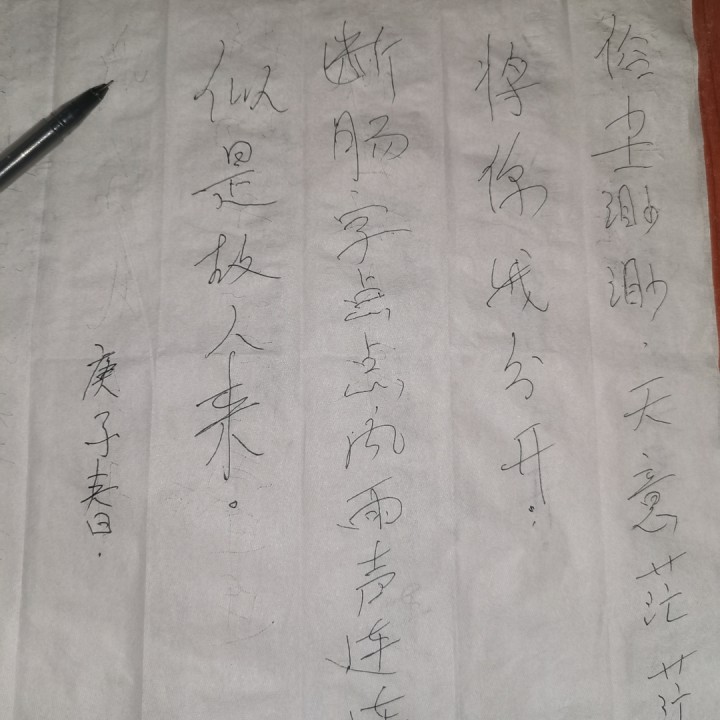 俗尘渺渺.天意茫茫
将你我分开.
断肠字点点风雨声连连
似是故人来。
庚子春.